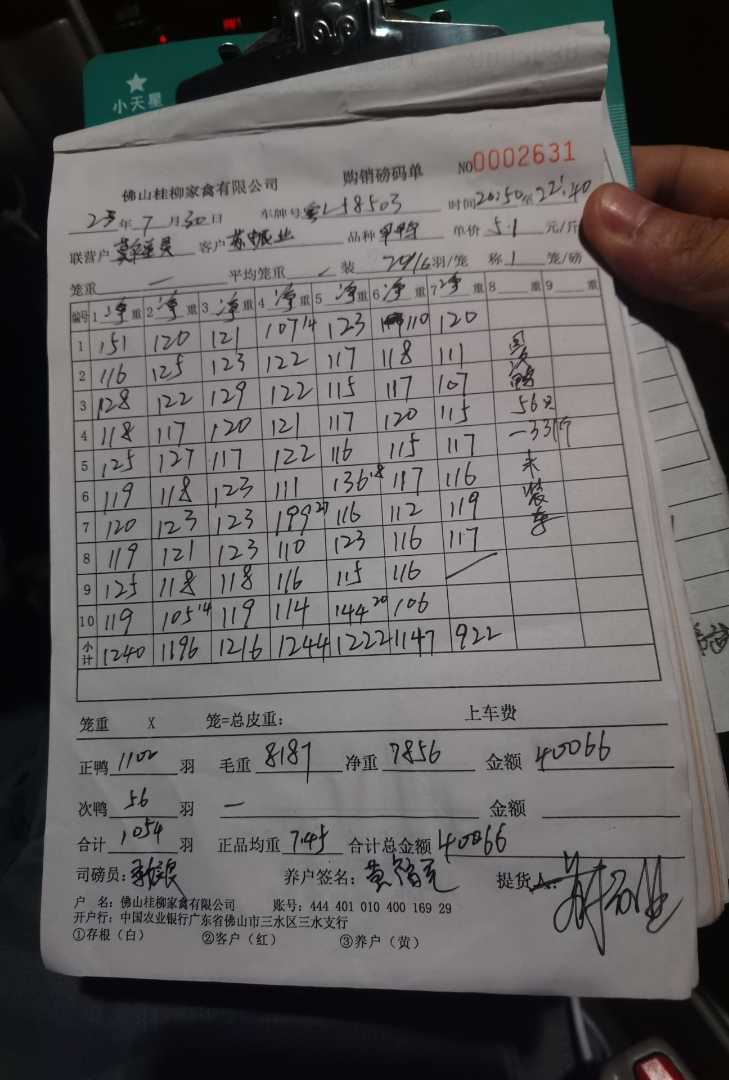 小天星
佛山桂柳家禽有限公司 购销磅码单 NO0002631
23年7月30日 车牌号 L58503 时间20:50至22:40
联营户 客户 品种 单价 5.1 元/斤
笼重 — 平均笼重 装 16羽/笼 称 1 笼/磅
编号 1 净重 2 净重 3 净重 4 净重 5 净重 6 净重 7 净重 8 重 9 重
1 151 120 121 107 14 123 110 120
2 116 125 123 122 117 118 111
3 128 122 129 122 115 117 107
4 118 117 120 121 117 120 115 56只
5 125 127 117 122 116 115 117 -331斤
6 119 118 123 111 136 18 117 116 未
7 120 123 123 199 27 116 112 119 装
8 119 121 123 110 123 116 117 车
9 125 118 118 116 115 116
10 119 105 14 119 114 144 20 106
小计 1240 1196 1216 1244 1222 1147 922
笼重 X 笼=总皮重: 上车费
正鸭 1102 羽 毛重 8187 净重 7856 金额 40066
次鸭 56 羽 — 金额
合计 1054 羽 正品均重 7.45 合计总金额 40066
司磅员: 养户签名: 提货人:
户 名: 佛山桂柳家禽有限公司 账号: 444 401 010 400 169 29
开户行: 中国农业银行广东省佛山市三水区三水支行
①存根（白） ②客户（红） ③养户（黄）